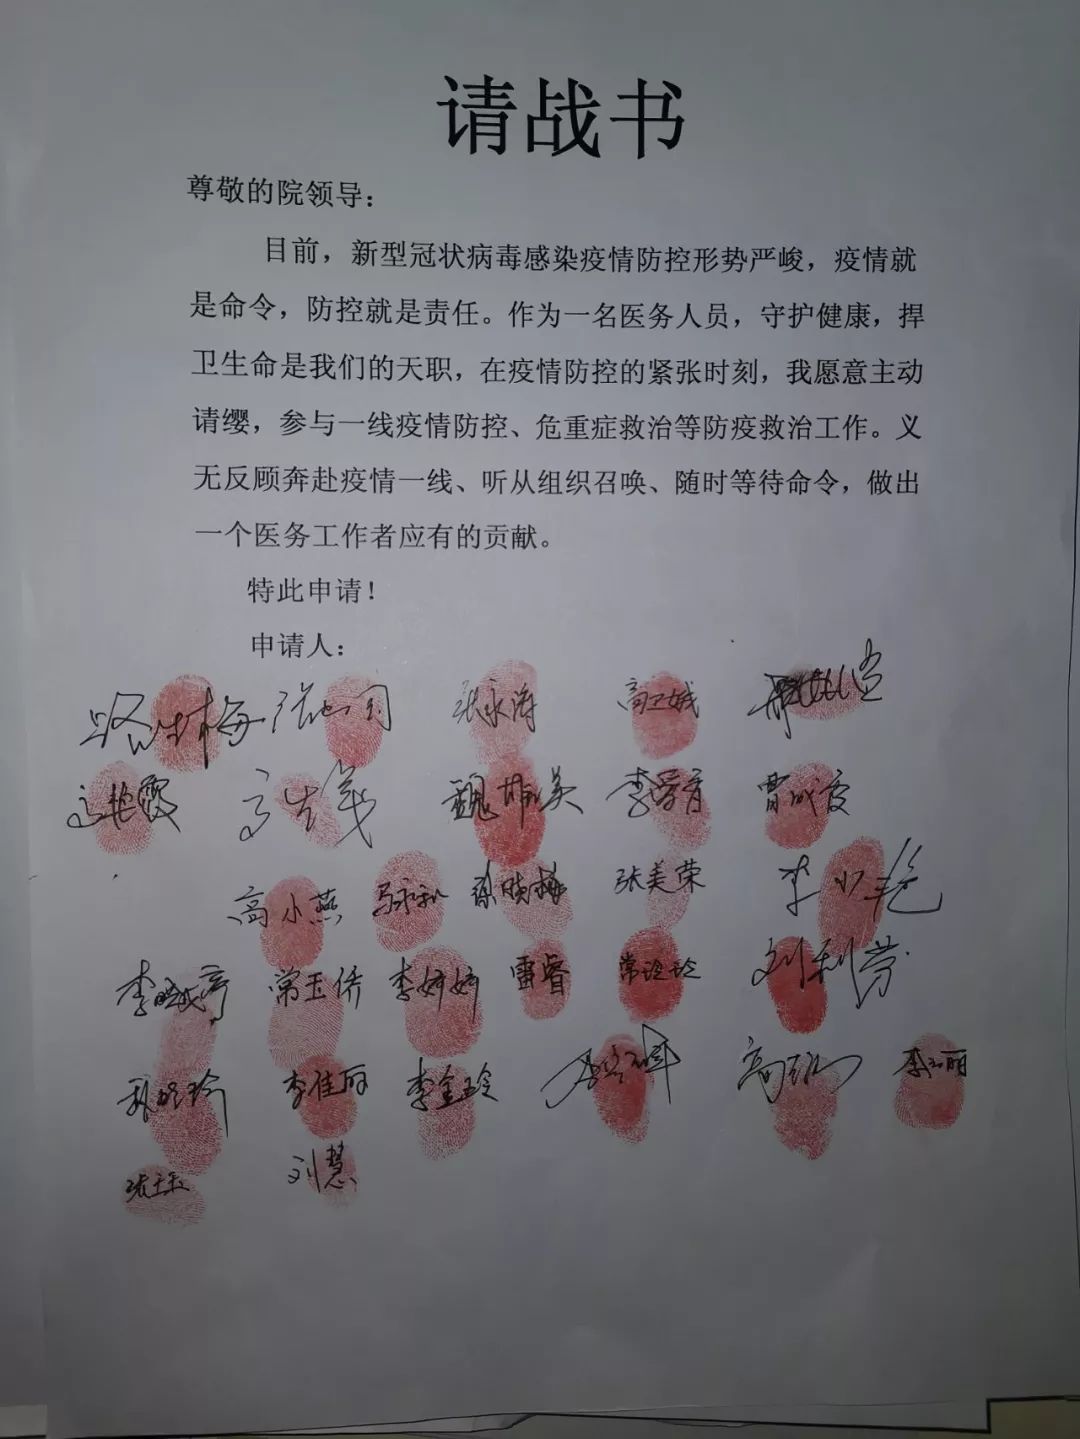 请战书
尊敬的院领导：
目前，新型冠状病毒感染疫情防控形势严峻，疫情就
是命令，防控就是责任。作为一名医务人员，守护健康，捍
卫生命是我们的天职，在疫情防控的紧张时刻，我愿意主动
请缨，参与一线疫情防控、危重症救治等防疫救治工作。义
无反顾奔赴疫情一线、听从组织召唤、随时等待命令，做出
一个医务工作者应有的贡献。
特此申请！
申请人：
张永涛 高卫娥
高小燕 马永利 徐晓梅 张美荣 李少艳
常玉侨 李婷婷 雷睿 常玲玲 刘利芬
李佳丽 李金玲
刘慧